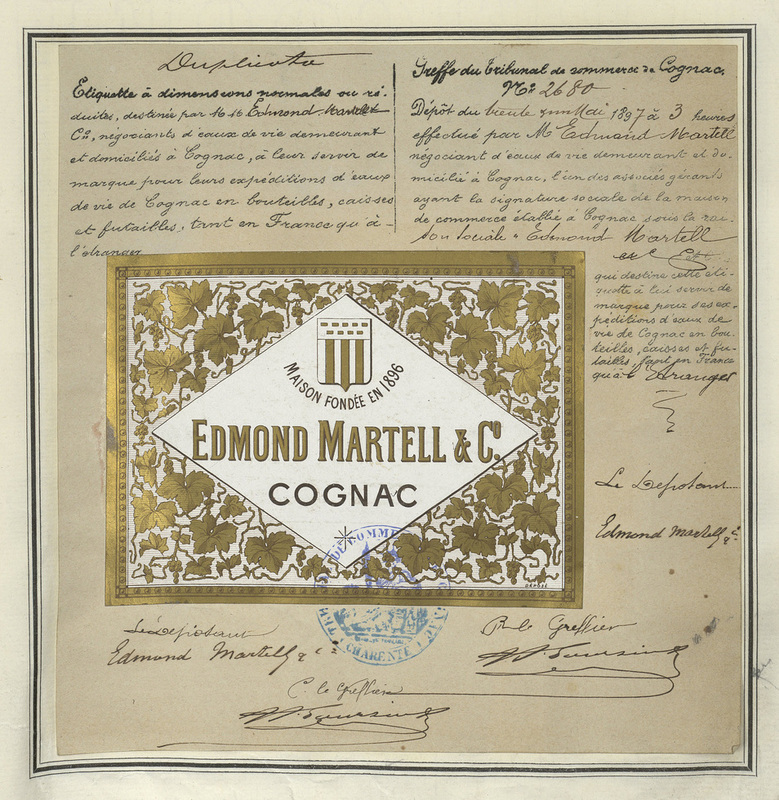 Duplicata
Etiquette à dimensions normales ou ré-
duites, destinée par M.M. Edmond Martell &
Cie, négociants d'eaux de vie demeurant
et domiciliés à Cognac, à leur servir de
marque pour leurs expéditions d'eaux
de vie de Cognac en bouteilles, caisses
et futailles, tant en France qu'à
l'étranger
Greffe du tribunal de commerce de Cognac.
No 2680
Dépôt du trente un Mai 1897 à 3 heures
effectué par M Edmond Martell
négociant d'eaux de vie demeurant et do-
micilié à Cognac, l'un des associés gérants
ayant la signature sociale de la maison
de commerce établie à Cognac sous la rai-
son sociale "Edmond Martell
et Cie
qui destine cette éti-
quette à lui servir de
marque pour ses ex-
péditions d'eaux de
vie de Cognac en bou-
teilles, caisses et fu-
tailles tant en France
qu'à l'Etranger
MAISON FONDÉE EN 1896
EDMOND MARTELL & Co.
COGNAC
Le Deposant
Edmond Martell & Cie
DE COMME
CHARENTE
Le Deposant
Edmond Martell & Cie
P. le Greffier
C. le Greffier